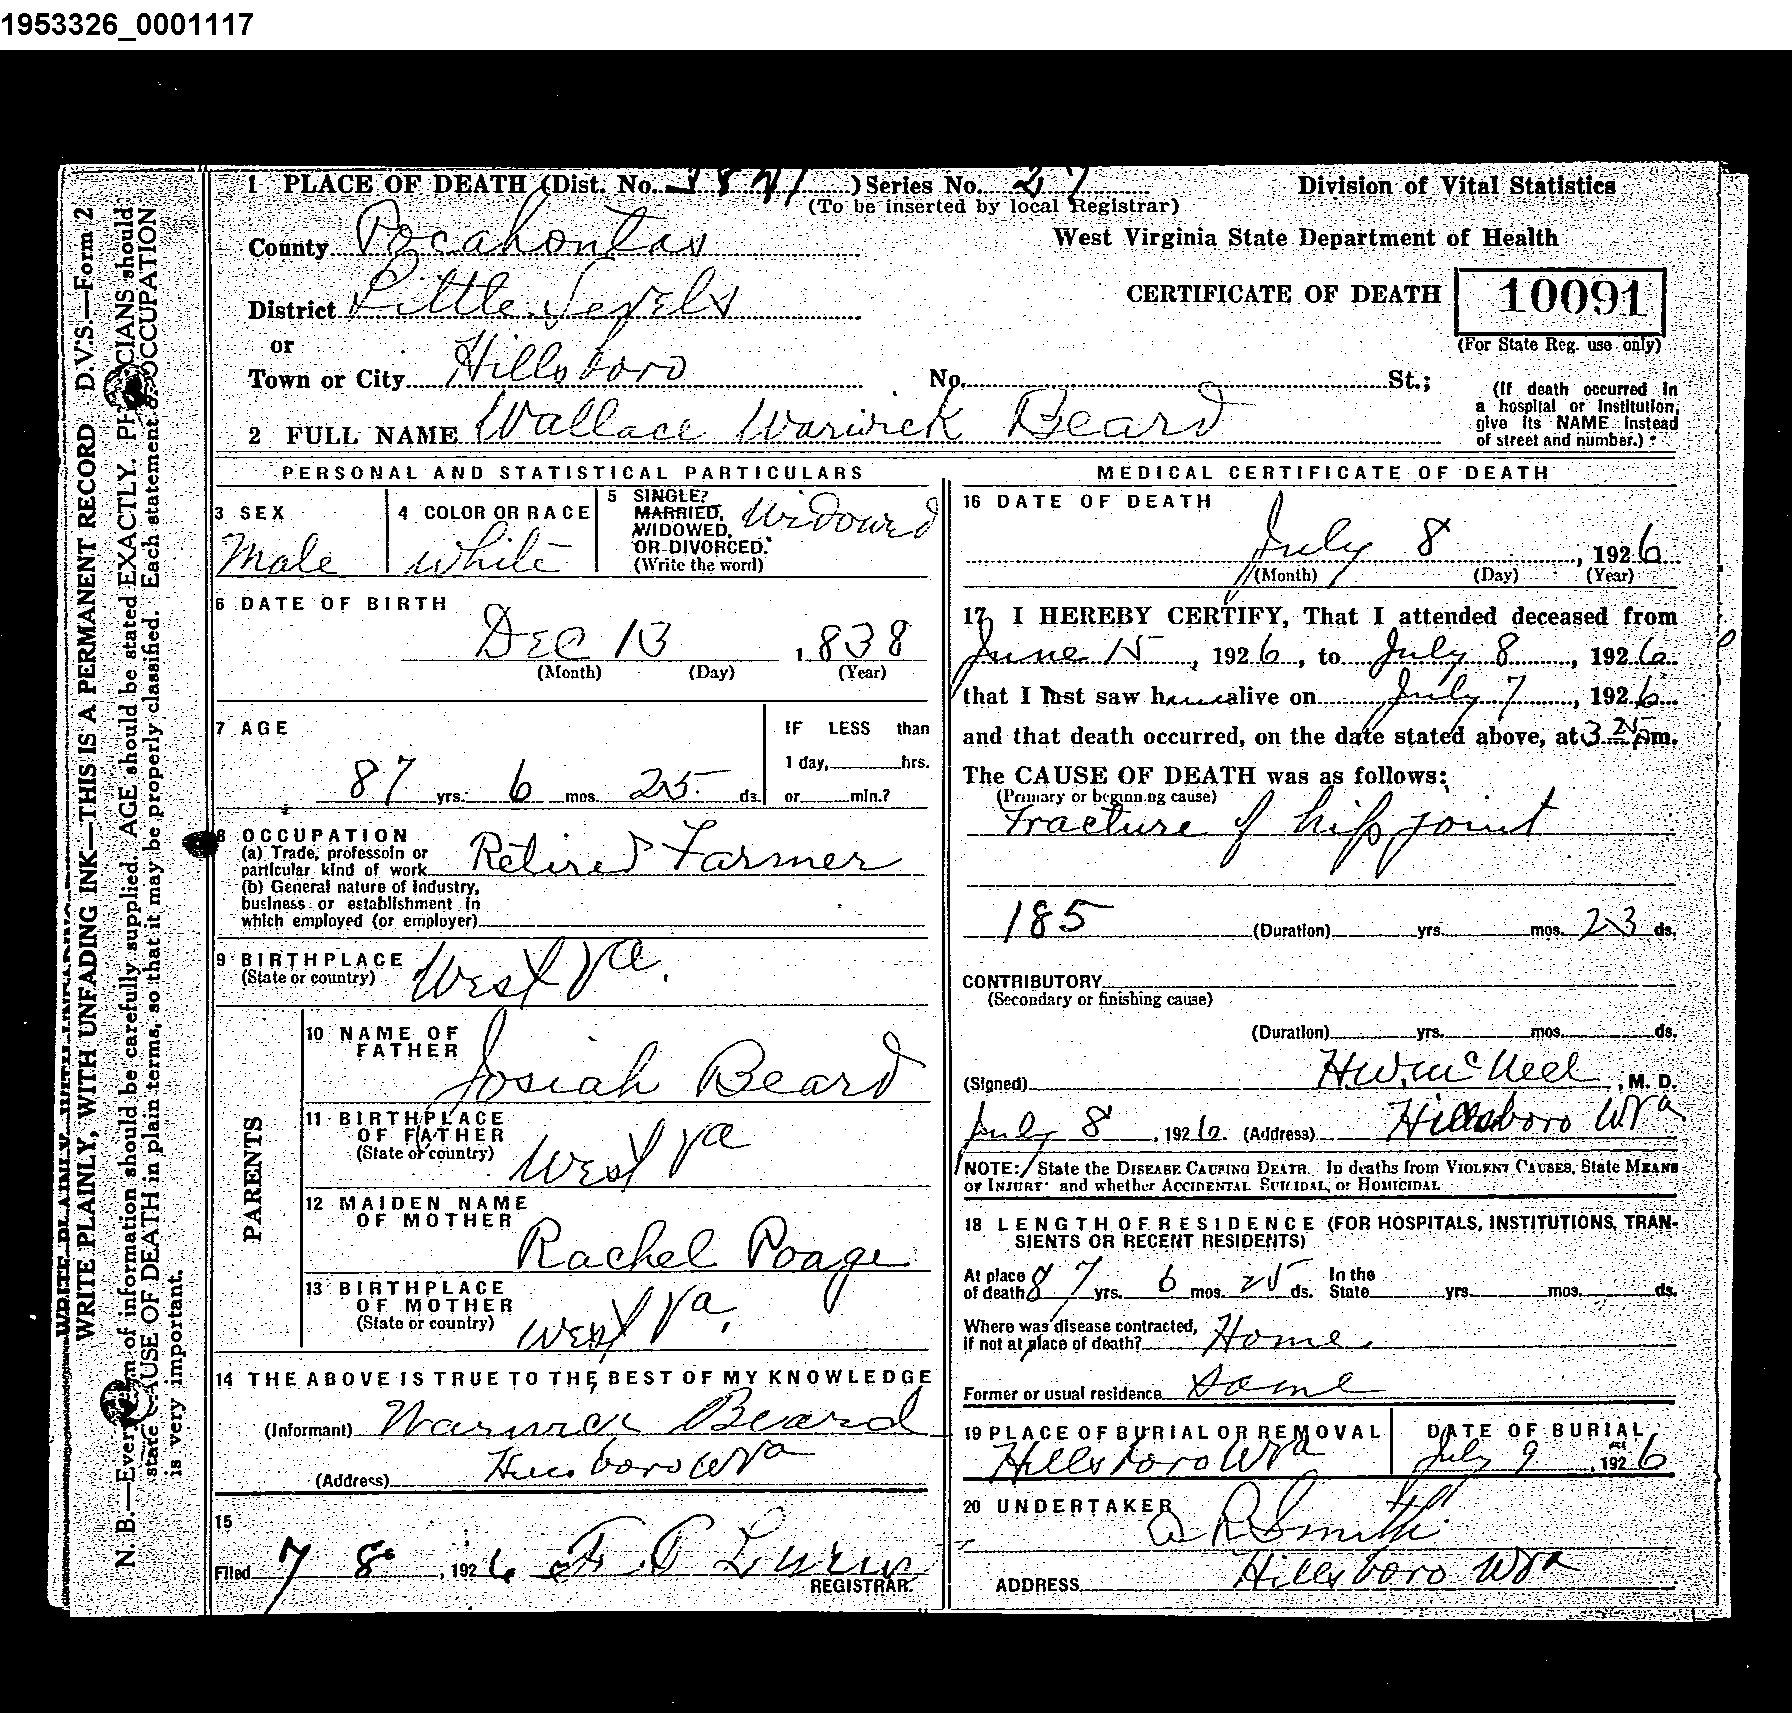 1953326_0001117
1 PLACE OF DEATH (Dist. No. ) Series No. 27
(To be inserted by local Registrar)
Division of Vital Statistics
County Pocahontas
West Virginia State Department of Health
District Little Levels
CERTIFICATE OF DEATH 10091
or
(For State Reg. use only)
Town or City Hillsboro No. St.;
(If death occurred in
a hospital or institution,
give its NAME instead
of street and number.)
2 FULL NAME Wallace Warwick Beard
PERSONAL AND STATISTICAL PARTICULARS
3 SEX
Male
4 COLOR OR RACE
White
5 SINGLE?
MARRIED,
WIDOWED,
OR DIVORCED.
(Write the word)
Widowed
6 DATE OF BIRTH
Dec 13 , 1838
(Month) (Day) (Year)
7 AGE
87 yrs. 6 mos. 25 ds.
IF LESS than
1 day, hrs.
or min.?
8 OCCUPATION
(a) Trade, professoin or
particular kind of work Retired Farmer
(b) General nature of Industry,
business or establishment in
which employed (or employer)
9 BIRTHPLACE
(State or country) West Va.
PARENTS
10 NAME OF
FATHER
Josiah Beard
11 BIRTHPLACE
OF FATHER
(State or country)
West Va
12 MAIDEN NAME
OF MOTHER
Rachel Poage
13 BIRTHPLACE
OF MOTHER
(State or country)
West Va.
14 THE ABOVE IS TRUE TO THE BEST OF MY KNOWLEDGE
(Informant) Warwick Beard
(Address) Hillsboro WVa
15
Filed 7 8 , 1926
REGISTRAR.
MEDICAL CERTIFICATE OF DEATH
16 DATE OF DEATH
July 8 , 1926
(Month) (Day) (Year)
17 I HEREBY CERTIFY, That I attended deceased from
June 15 , 1926, to July 8 , 1926
that I last saw him alive on July 7 , 1926
and that death occurred, on the date stated above, at 3 25 A m.
The CAUSE OF DEATH was as follows:
(Primary or beginning cause)
Fracture of hip joint
185 (Duration) yrs. mos. 23 ds.
CONTRIBUTORY
(Secondary or finishing cause)
(Duration) yrs. mos. ds.
(Signed) H.W. McNeel , M. D.
July 8 , 1926. (Address) Hillsboro WVa
NOTE: State the DISEASE CAUSING DEATH. In deaths from VIOLENT CAUSES, State MEANS
OF INJURY and whether ACCIDENTAL SUICIDAL, or HOMICIDAL
18 LENGTH OF RESIDENCE (FOR HOSPITALS, INSTITUTIONS, TRAN-
SIENTS OR RECENT RESIDENTS)
At place
of death 87 yrs. 6 mos. 25 ds.
In the
State yrs. mos. ds.
Where was disease contracted,
if not at place of death? Home.
Former or usual residence Same
19 PLACE OF BURIAL OR REMOVAL
Hillsboro WVa
DATE OF BURIAL
July 9 , 1926
20 UNDERTAKER
A R Smith
ADDRESS Hillsboro WVa
D.V.S.—Form 2
WRITE PLAINLY, WITH UNFADING INK—THIS IS A PERMANENT RECORD
N. B.—Every item of information should be carefully supplied. AGE should be stated EXACTLY. PHYSICIANS should
state CAUSE OF DEATH in plain terms, so that it may be properly classified. Each statement of OCCUPATION
is very important.